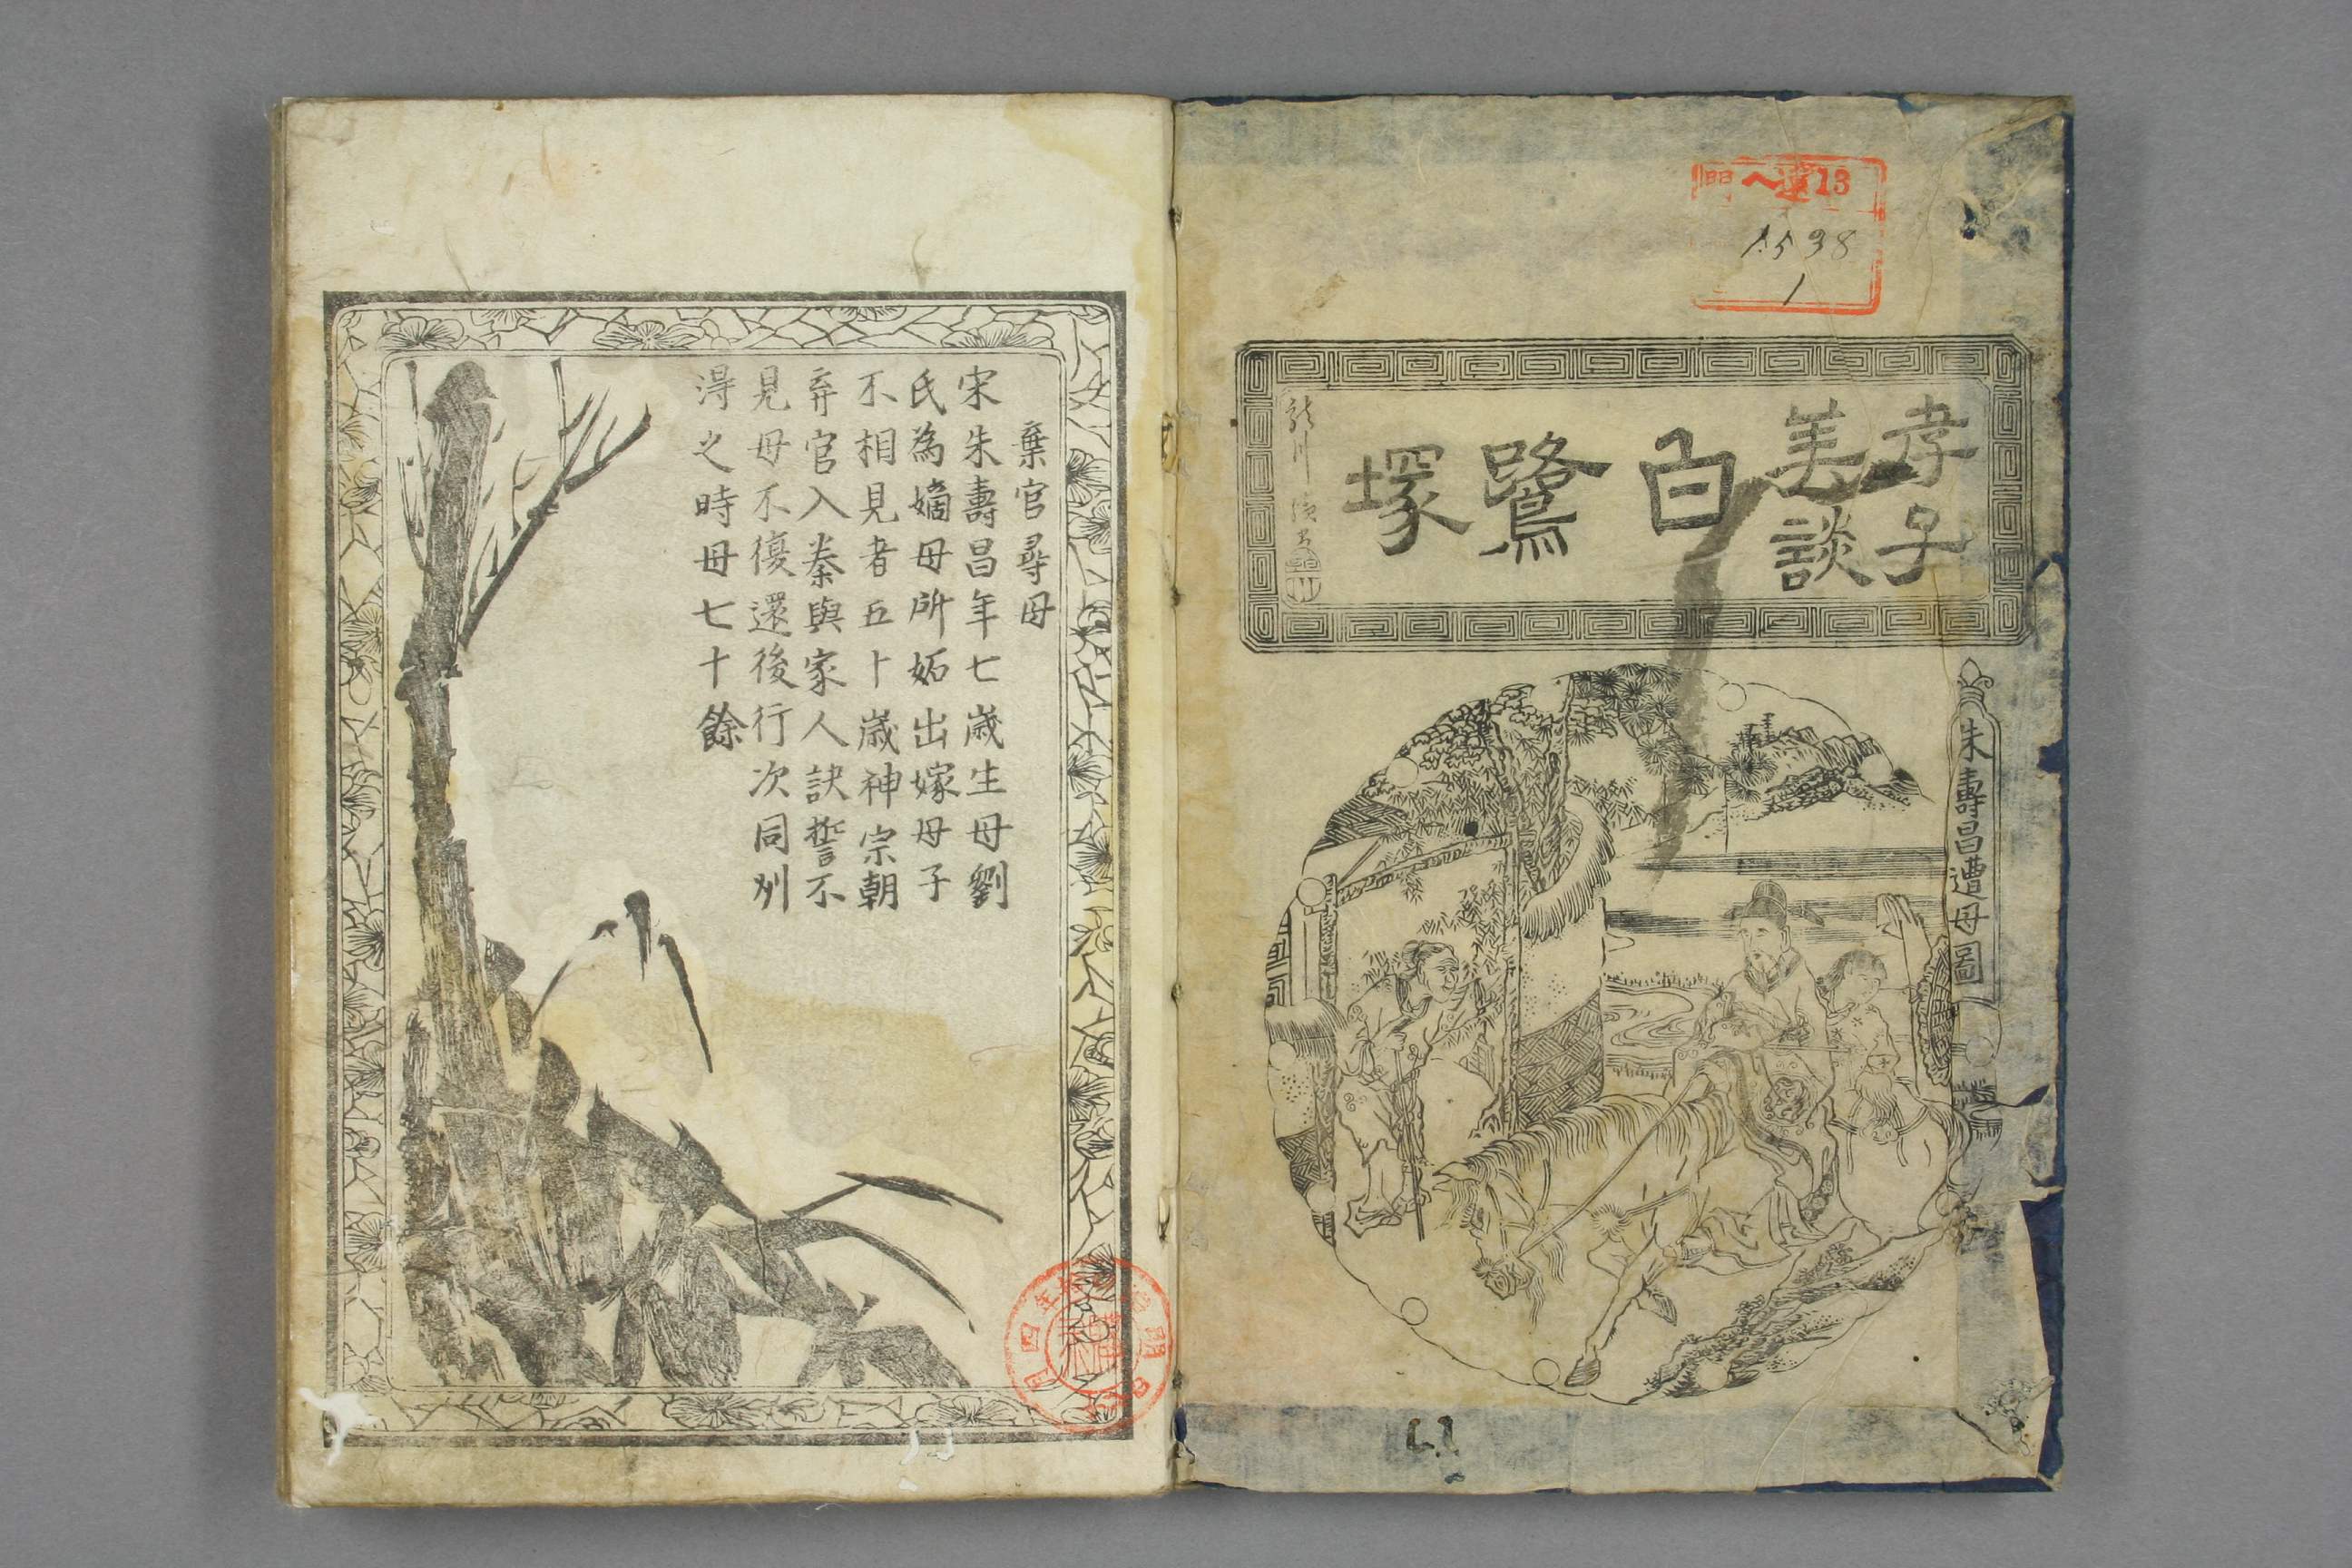 門
13
1538
1
孝子
美談
白鷺塚
朱壽昌遭母圖
棄官尋母
宋朱壽昌年七歳生母劉
氏為嫡母所妬出嫁母子
不相見者五十歳神宗朝
弃官入秦與家人訣誓不
見母不復還後行次同州
得之時母七十餘